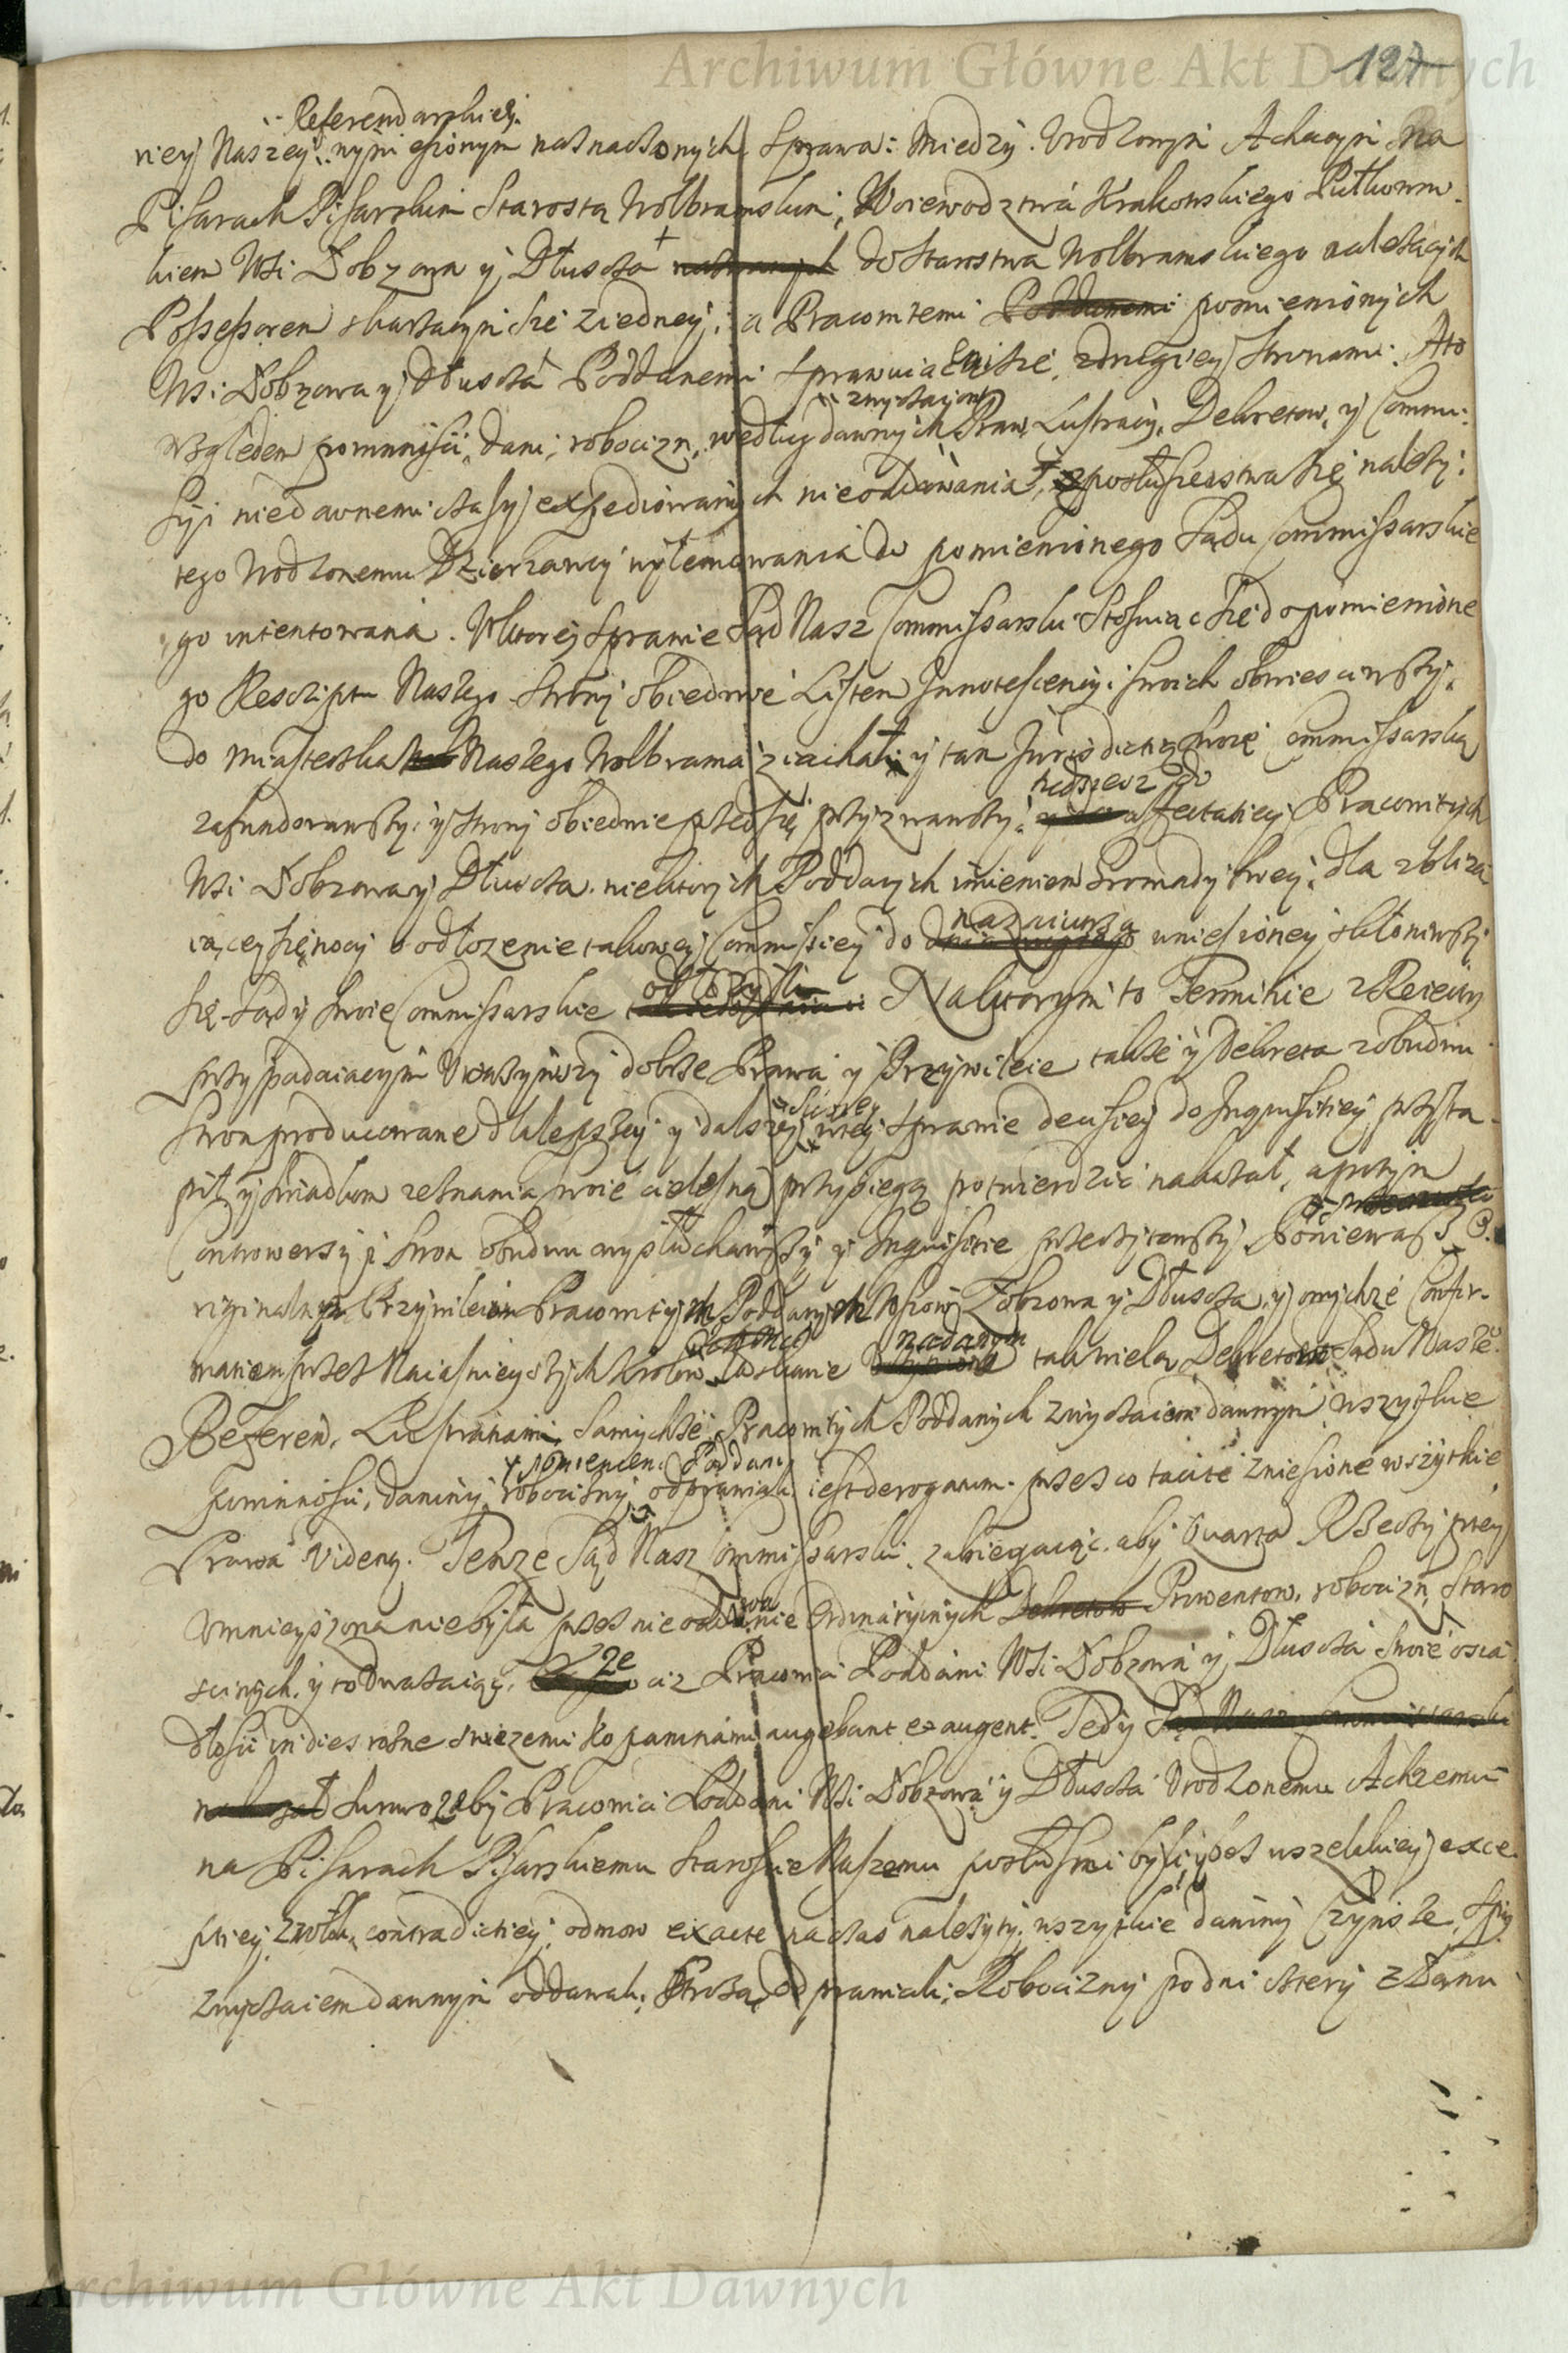 Archiwum Główne Akt Dawnych
127
Referendarskiej
riey Naszey wyniesionym naznaczonych Sprawa: Miedzy Urodzonym Achacym na
Pisarach Pisarskim Starostą Wolbramskim, Woiewodztwa Krakowskiego Pułkowni-
kiem Wsi Dobzowa y Dłuscza do Starostwa Wolbramskiego należących
Possessorem skarzacym się z iedney, a Pracowitemi Poddanemi pomienionych
Wsi Dobzowa y Dłuscza Poddanemi sprawuiącemi się z drugiey stronami. A to
zwyczaiow
względem powinności, dani, robocizn, według dawnych Praw, Lustracij, Dekretow, y Commi-
syi niedawnemi czasy expediowanych nieoddawania, posłuszenstwa się należy-
tego Urodzonemu Dzierzawcy wyłamowania do pomienionego Sądu Commissarskie
go intentowana. W ktorey sprawie Sąd Nasz Commissarski stosuiąc się do pomienione
go Rescriptu Naszego strony obiedwie Listem Innotescencyi swoich obwiesciwszy,
do Miasteczka Naszego Wolbrama ziachali y tam Jurisdictią swoię Commissarską
zafundowawszy, y strony obiedwie przed się przyzwawszy, affectatiey Pracowitych
Wsi Dobzowa y Dłuscza niektorych Poddanych imieniem Gromady swey, dla zbliza
iącey się nocy o odłozenie takowey Commissiey do dnia
nazaiutrz
uniesioney skłoniwszy
się Sądy swoie Commissarskie
odłozyli
Na ktorym to Terminie z Rzeczy
przypadaiacym zwazywszy dobrze Prawa y Przywileie takze y Dekreta z obudwu
stron producowane dla lepszey y dalszey w tey sprawie decisiey do Inquisitiey przystą-
pił, y swiadkom zeznania swoie cielesną przysięgą potwierdzic nakazał, a potym
Controwersyi stron obudwu wysłuchawszy y Inquisitie przeczytawszy. Poniewasz O-
riginalnym Przywileiom Pracowitych Poddanych Wsiow Dobzowa y Dłuscza, y onychze Confir-
matiem przez Naiasnieyszych Krolow
nadanym
tak wielą Dekretow Sądu Nasze
Referen. Lustratiami samychze Pracowitych Poddanych zwyczaiem dawnym wszytkie
pomienieni Poddani
powinnosci, daniny, robocizny odprawiali iest derogatum przez co tacite zniesione wszytkie
Prawa viden. Tenze Sąd Nasz Commissarski, zabiegaiąc aby Quarta Rzeczyptey
umnieyszona nie była przez nieoddanie Ordinaryinych Dekretow Prowentow, robocizn Staro
scinych, y to uwazaiąc,
ze
ciz Pracowici Poddani Wsi Dobzowa y Dłuscza swoie osia
dłosci in dies rozne swiezemi kopaninami augebant et augent. Tedy Sąd Nasz Commissarski
nakazał surowo zeby Pracowici Poddani Wsi Dobzowa y Dłuscza Urodzonemu Achacemu
na Pisarach Pisarskiemu Staroscie Naszemu posłuszni byli, y bez wszelkiey exce
ptiey, zwłoki, contradictiey, odmow exacte na czas nalezyty wszytkie daniny Czynsze,
zwyczaiem dawnym oddawali, Stroza odprawiali, Robocizny po dni cztery z Łanu
Archiwum Główne Akt Dawnych